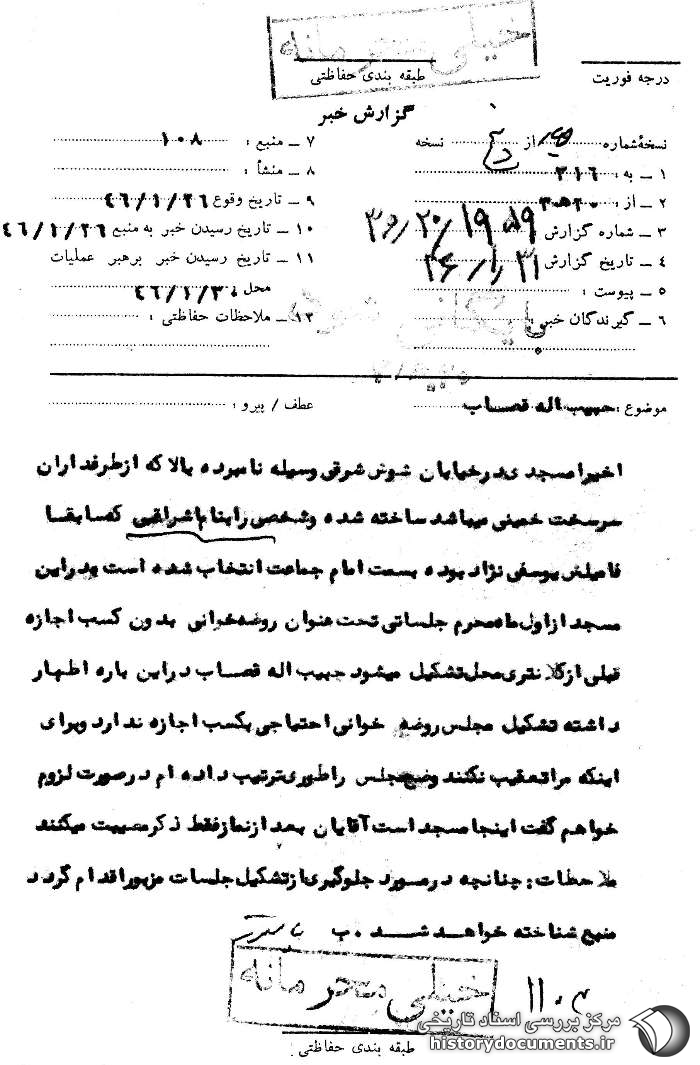 خیلی محرمانه
درجه فوریت
طبقه بندی حفاظتی
گزارش خبر
نسخهٔ شماره از نسخه
۱ ــ به : ۳۱۶
۲ ــ از :
۳ ــ شماره گزارش
۴ ــ تاریخ گزارش
۵ ــ پیوست :
۶ ــ گیرندگان خبر :
۷ ــ منبع : ۱۰۸
۸ ــ منشأ :
۹ ــ تاریخ وقوع ۴۶/۱/۲۶
۱۰ ــ تاریخ رسیدن خبر به منبع ۴۶/۱/۲۶
۱۱ ــ تاریخ رسیدن خبر برهبر عملیات
محل ۴۶/۱/۳۰
۱۲ ــ ملاحظات حفاظتی :
بایگانی شود
موضوع : حبیب اله قصاب
عطف / پیرو :
اخیرا مسجدی در خیابان شوش شرقی وسیله نامبرده بالا که از طرفداران
سرسخت خمینی میباشد ساخته شده و شخصی را بنام اشراقی که سابقا
فامیلش یوسفی نژاد بوده بسمت امام جماعت انتخاب شده است در این
مسجد از اول ماه محرم جلساتی تحت عنوان روضه خوانی بدون کسب اجازه
قبلی از کلانتری محل تشکیل میشود حبیب اله قصاب در این باره اظهار
داشته تشکیل مجلس روضه خوانی احتیاجی بکسب اجازه ندارد و برای
اینکه مرا تعقیب نکنند وضع مجلس را طوری ترتیب داده ام در صورت لزوم
خواهم گفت اینجا مسجد است آقایان بعد از نماز فقط ذکر مصیبت میکنند
ملاحظات : چنانچه در مورد جلوگیری از تشکیل جلسات مزبور اقدام گردد
منبع شناخته خواهد شد . ب
خیلی محرمانه
طبقه بندی حفاظتی
مرکز بررسی اسناد تاریخی
historydocuments.ir